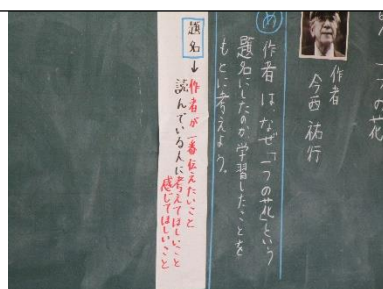 一つの花
作者
今西祐行
め
作者は、なぜ「一つの花」という
題名にしたのか学習したことを
もとに考えよう。
題名→作者が一番伝えたいこと
読んでいる人に考えてほしいこと
感じてほしいこと